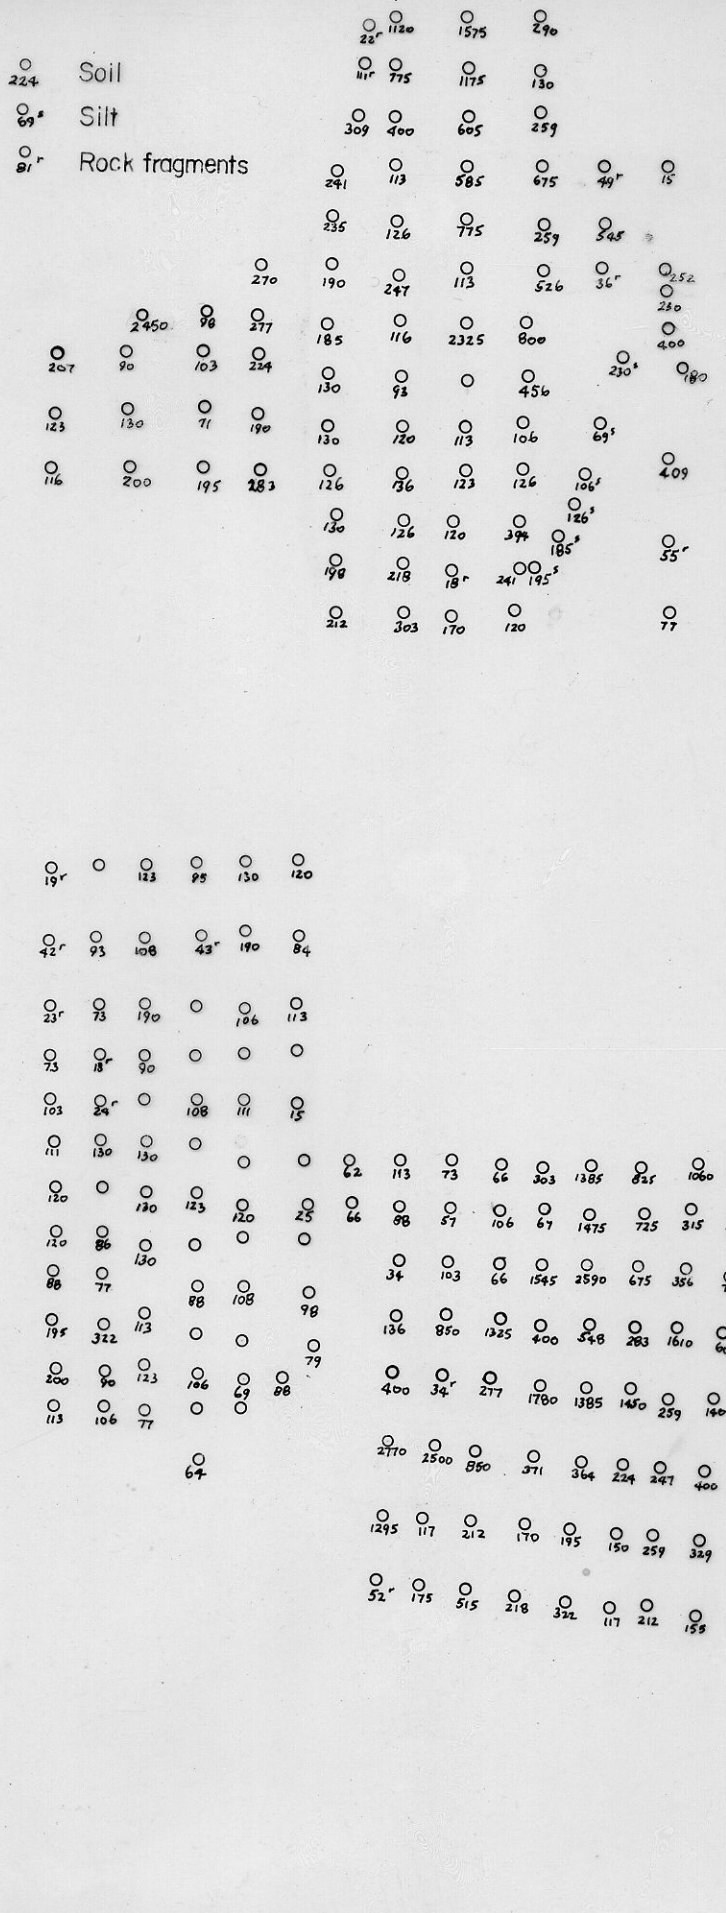 22r 1120 1575 290
224 Soil
111r 775 1175 130
69s Silt
309 400 605 259
81r Rock fragments
241 113 585 675 49r 15
235 126 775 259 545
270 190 247 113 526 36r 252
230
2450 98 277 185 116 2325 800 400
207 90 103 224 130 93 456 230s 180
123 130 71 190 130 120 113 106 69s
116 200 195 283 126 136 123 126 106s 409
130 126 120 394 126s
185s 55r
198 218 18r 241 195s
212 303 170 120 77
19r 123 95 130 120
42r 93 108 43r 190 84
23r 73 190 106 113
73 18r 90
103 24r 108 111 15
111 130 130
62 113 73 66 303 1385 825 1060
120 130 123 120 25 66 88 57 106 67 1475 725 315
120 86 130
34 103 66 1545 2590 675 356
88 77 88 108 98
195 322 113 136 850 1325 400 548 283 1610
79
200 90 123 106 69 88 400 34r 277 1780 1385 1450 259 140
113 106 77
64 2770 2500 850 371 364 224 247 400
1295 117 212 170 195 150 259 329
52r 175 515 218 322 117 212 155